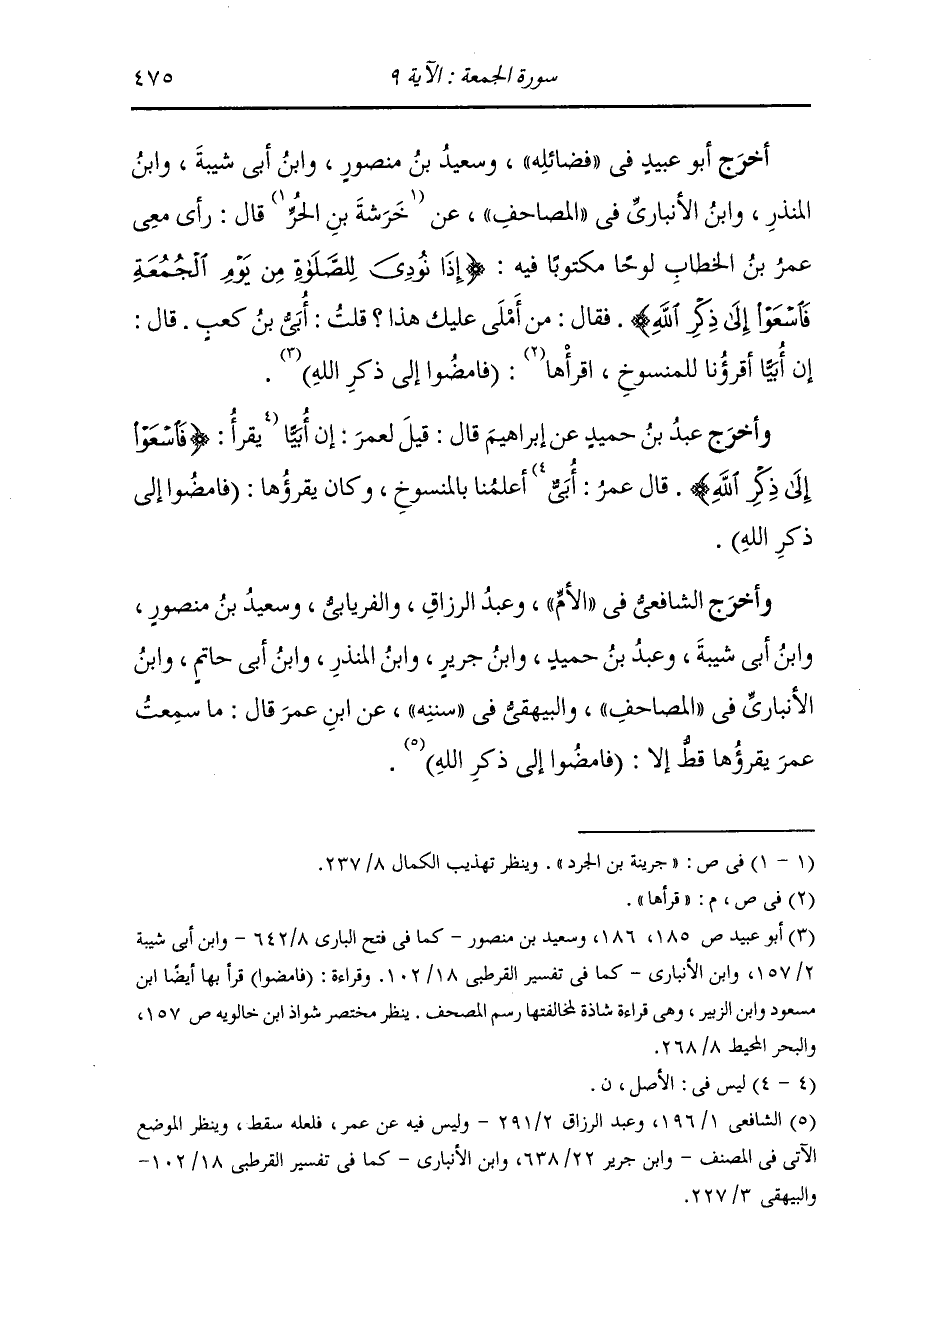 سورة الجمعة : الآية ٩ ٤٧٥
أخرَج أبو عبيدٍ فى «فضائلِه» ، وسعيدُ بنُ منصورٍ ، وابنُ أبى شيبةَ ، وابنُ
المنذرِ ، وابنُ الأنبارىِّ فى «المصاحفِ» ، عن (١خَرَشةَ بنِ الحُرِّ١) قال : رأى معِى
عمرُ بنُ الخطابِ لوحًا مكتوبًا فيه : ﴿إِذَا نُودِىَ لِلصَّلَوٰةِ مِن يَوْمِ ٱلْجُمُعَةِ
فَٱسْعَوْا۟ إِلَىٰ ذِكْرِ ٱللَّهِ﴾ . فقال : من أَمْلَى عليك هذا ؟ قلتُ : أُبَىُّ بنُ كعبٍ . قال :
إن أُبَيًّا أقرؤُنا للمنسوخِ ، اقرأْها(٢) : (فامضُوا إلى ذكرِ اللهِ)(٣) .
وأخرَج عبدُ بنُ حميدٍ عن إبراهيمَ قال : قيلَ لعمرَ : إن أُبَيًّا (٤يقرأُ : ﴿فَٱسْعَوْا۟
إِلَىٰ ذِكْرِ ٱللَّهِ﴾ . قال عمرُ : أُبَىٌّ٤) أعلمُنا بالمنسوخِ ، وكان يقرؤُها : (فامضُوا إلى
ذكرِ اللهِ) .
وأخرَج الشافعىُّ فى «الأمِّ» ، وعبدُ الرزاقِ ، والفريابىُّ ، وسعيدُ بنُ منصورٍ ،
وابنُ أبى شيبةَ ، وعبدُ بنُ حميدٍ ، وابنُ جريرٍ ، وابنُ المنذرِ ، وابنُ أبى حاتمٍ ، وابنُ
الأنبارىِّ فى «المصاحفِ» ، والبيهقىُّ فى «سننِه» ، عن ابنِ عمرَ قال : ما سمِعتُ
عمرَ يقرؤُها قطُّ إلا : (فامضُوا إلى ذكرِ اللهِ)(٥) .
(١ - ١) فى ص : « جرينة بن الجرد» . وينظر تهذيب الكمال ٨/ ٢٣٧.
(٢) فى ص ، م : « قرأها» .
(٣) أبو عبيد ص ١٨٥، ١٨٦، وسعيد بن منصور - كما فى فتح البارى ٦٤٢/٨ - وابن أبى شيبة
٢/ ١٥٧، وابن الأنبارى - كما فى تفسير القرطبى ١٨/ ١٠٢. وقراءة : (فامضوا) قرأ بها أيضًا ابن
مسعود وابن الزبير ، وهى قراءة شاذة لمخالفتها رسم المصحف . ينظر مختصر شواذ ابن خالويه ص ١٥٧،
والبحر المحيط ٨/ ٢٦٨.
(٤ - ٤) ليس فى : الأصل ، ن .
(٥) الشافعى ١/ ١٩٦، وعبد الرزاق ٢٩١/٢ - وليس فيه عن عمر ، فلعله سقط ، وينظر الموضع
الآتى فى المصنف - وابن جرير ٢٢/ ٦٣٨، وابن الأنبارى - كما فى تفسير القرطبى ١٨/ ١٠٢-
والبيهقى ٣/ ٢٢٧.